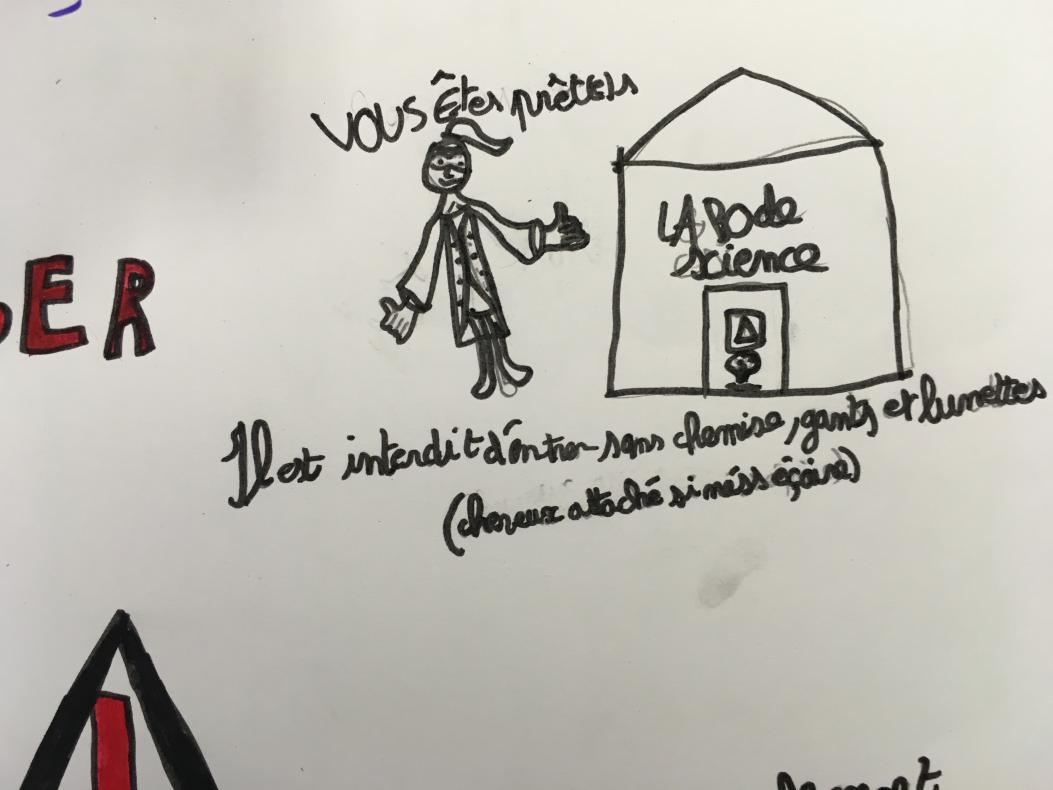 VOUS Êtes prêt(e)s
LABO de
science
ER
Il est interdit d'entrer sans chemise, gants et lunettes
(cheveux attaché si néssèçaire)